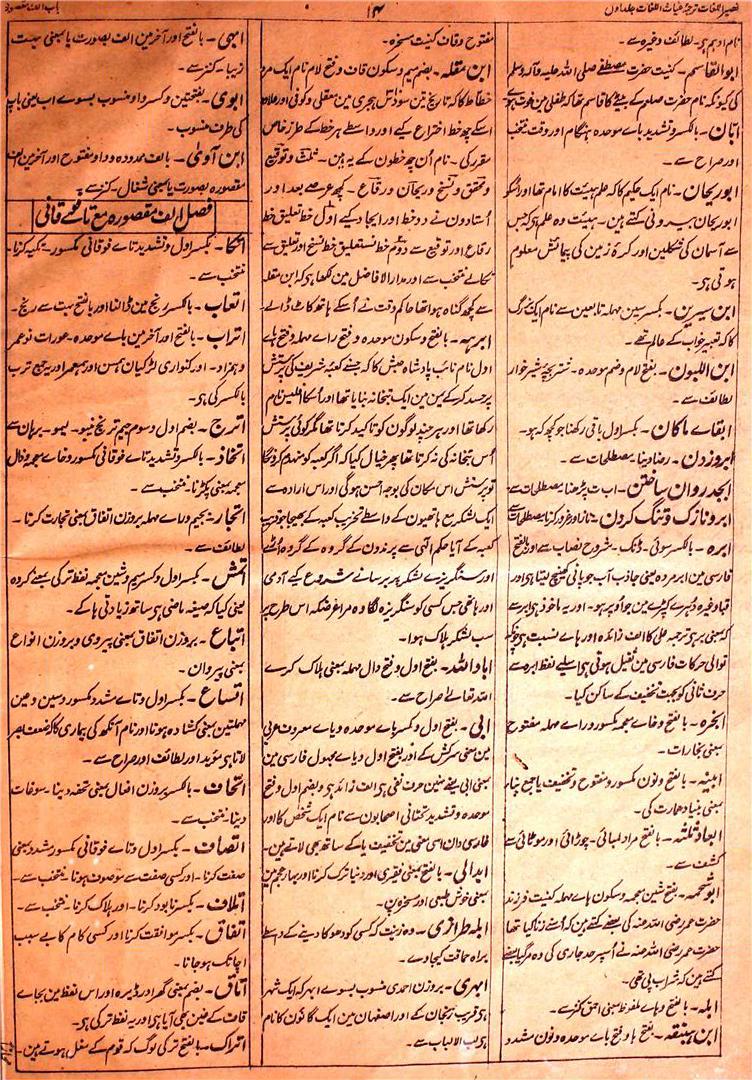 نصیر اللغات ترجمۂ غیاث اللغات جلد اول
۱۴
باب الف مقصورہ
نام ادہم ہے۔ لطائف وغیرہ سے ۔
ابوالقاسم۔ کنیت حضرت مصطفےٰ صلی اللہ علیہ وآلہ وسلم
کی کیونکہ نام حضرت صلعم کے بیٹے کا قاسم تھا کہ طفلی میں فوت ہوئے
ابّان۔ بالکسر و تشدید باے موحدہ ہنگام اور وقت منتخب
اور صراح سے ۔
ابوریحان۔ نام ایک حکیم کا کہ علم ہیئت کا امام تھا اور اسکو
ابوریحان بیرونی کہتے ہین۔ ہیئت وہ علم ہے کہ جس
سے آسمان کی شکلین اور کرۂ زمین کی پیمائش معلوم
ہوتی ہے۔
ابن سیرین۔ بکسر سین مہملہ تابعین سے نام ایک بزرگ
کا کہ تعبیر خواب کے عالم تھے۔
ابن اللبون۔ بفتح لام وضم موحدہ۔ شتر بچۂ شیر خوار
لطائف سے ۔
ابقاے ماکان۔ بکسر اول باقی رکھنا جو کچھ کہ ہو۔
ابرو زدن۔ رضا دینا مصطلحات سے ۔
ابجد روان ساختن۔ اب ت پڑھنا مصطلحات سے۔
ابرو نازک و تنگ کردن۔ ناز اور غرور کرنا مصطلحات سے
ابرہ۔ بالکسر سوئی۔ ڈنک۔ شروح نصاب سے اور بالفتح
فارسی مین ابر مردہ یعنی جاذب آب جو پانی کھینچ لیتا ہے اور
قبا وغیرہ دہرے کپڑے مین جو اوپر ہو۔ اور یہ ماخوذ ہے ابر سے
کہ بمعنی بر ہے ترجمہ علی کا الف زائدہ اور ہاے نسبت ہے چونکہ
توالی حرکات فارسی مین ثقیل ہوتی ہے اسلیے لفظ ابرہ سے
حرف ثانی کو بجہت تخفیف کے ساکن کیا۔
ابخرہ۔ بالفتح و خاے معجمہ مکسور و راے مہملہ مفتوح
بمعنی بخارات۔
ابنیہ۔ بالفتح و نون مکسور و مفتوح و تخفیف یا جمع بناء
بمعنی بنیاد عمارت کی۔
ابعاد ثلثہ۔ بالفتح مراد لمبائی۔ چوڑائی اور موٹائی سے
کشف سے ۔
ابوشحمہ۔ بفتح شین معجمہ و سکون حاے مہملہ کنیت فرزند
حضرت عمر رضی اللہ عنہ کی بعضے کہتے ہین کہ اُسنے زنا کیا تھا
حضرت عمر رضی اللہ عنہ نے اُسپر حد جاری کی وہ مر گیا بعضے
کہتے ہین کہ شراب پی تھی۔
ابلہ۔ بالفتح و ہاے ملفوظ بمعنی احمق کنز سے۔
ابن ہبنقہ۔ بفتح ہا و فتح باے موحدہ و نون مشدد
مفتوح و قاف کنیت مسخرہ۔
ابن مقلہ۔ بضم میم و سکون قاف و فتح لام نام ایک مرد
خطاط کا کہ تاریخ تین سو دس ہجری مین معقلی و کوفی اور علاوہ
اسکے چھ خط اختراع کیے اور واسطے ہر خط کے طرز خاص
مقرر کی۔ نام اُن چھ خطون کے یہ ہین۔ ثلث و توقیع
و محقق و نسخ و ریحان و رقاع۔ کچھ عرصے بعد اور
اُستادون نے دو خط اور ایجاد کیے اول خط تعلیق خط
رقاع اور توقیع سے دوّم خط نستعلیق خط نسخ اور تعلیق سے
نکالے منتخب سے اور مدار الافاضل مین لکھا ہے کہ ابن مقلہ
سے کچھ گناہ ہوا تھا حاکم وقت نے اُسکے ہاتھ کاٹ ڈالے۔
ابرہہ۔ بالفتح و سکون موحدہ و فتح راے مہملہ و فتح ہاے
اول نام نائب بادشاہ حبش کا کہ جسنے کعبۂ شریف کی پرستش
پر حسد کر کے یمن مین ایک بتخانہ بنایا تھا اور اُسکا قلیس نام
رکھا تھا اور ہر چند لوگون کو تاکید کرتا تھا مگر کوئی پرستش
اُس بتخانہ کی نہ کرتا تھا پھر خیال کیا کہ اگر کعبہ کو منہدم کرونگا
تو پرستش اس مکان کی بوجہ احسن ہوگی اور اس ارادہ سے
ایک لشکر مع ہاتھیون کے واسطے تخریب کعبہ کے بھیجا جو قریب
کعبہ کے آیا حکم الٰہی سے پرندون کے گروہ کے گروہ اُڑے
اور سنگریزے لشکر پر برسانے شروع کیے آدمی
اور ہاتھی جس کسی کو سنگریزہ لگا وہ مرا غرضکہ اس طرح پر
سب لشکر ہلاک ہوا۔
اباد اللہ۔ بفتح اول و فتح دال مہملہ بمعنی ہلاک کرے
اللہ تعالے صراح سے۔
ابی۔ بفتح اول و کسر باے موحدہ و یاے معروف عربی
مین بمعنی سرکش کے اور بفتح اول و یاے مجہول فارسی مین
بمعنی ابے یعنے مین حرف نفی ہے الف زائد ہے و بضم اول و فتح
موحدہ و تشدید تحتانی اصحابون سے نام ایک شخص کا اور
فارسی دان اسی معنی مین تخفیف یا کے ساتھ بھی لاتے ہین۔
ابدالی۔ بالفتح بمعنی فقیری اور دنیا ترک کرنا اور بہار عجم مین
بمعنی خوش طبعی اور سخرہ پن۔
ابلہ طرازی۔ وہ زینت کہ کسی کو دھوکا دینے کے واسطے
براہ حماقت کیجاوے۔
ابہری۔ بروزن احمدی منسوب بسوے ابہر کہ ایک شہر
ہے قریب زنجان کے اور اصفہان مین ایک گانون کا نام
ہے لب الالباب سے۔
ابہی۔ بالفتح اور آخر مین الف بصورت یا بمعنی بہت
زیبا۔ کنز سے۔
ابوی۔ بفتحتین و کسر واو منسوب بسوے اب یعنی باپ
کی طرف منسوب۔
ابن آویٰ۔ بالف ممدودہ و واو مفتوح اور آخر مین الف
مقصورہ بصورت یا بمعنی شغال۔ کنز سے۔
فصل الف مقصورہ مع تاے فوقانی
اتکا۔ بکسر اول و تشدید تاے فوقانی مکسور۔ تکیہ کرنا۔
منتخب سے۔
اتعاب۔ بالکسر رنج مین ڈالنا اور بالفتح بہت سے رنج۔
اتراب۔ بالفتح اور آخر مین باے موحدہ۔ عورات نو عمر
و ہمزاد۔ اور کنواری لڑکیان ہمسن اور ہمعمر اور جمع ترب
بالکسر کی ہے۔
اترج۔ بضم اول و سوم جیم ترنج نیبو۔ لیمو۔ برہان سے
اتخاذ۔ بالکسر و تشدید تاے فوقانی مکسور و خاے معجمہ و ذال
معجمہ بمعنی پکڑنا۔ منتخب سے۔
اتجار۔ بجیم و راے مہملہ بروزن اتفاق بمعنی تجارت کرنا۔
لطائف سے۔
اتمش۔ بکسر اول و کسر میم و شین معجمہ لفظ ترکی بمعنے کردہ
یعنی کیا کہ صیغہ ماضی ہے ساتھ زیادتی ہا کے۔
اتباع۔ بروزن اتفاق بمعنی پیروی و بروزن انواع
بمعنی پیروان۔
اتساع۔ بکسر اول و تاے مشدد مکسور و سین و عین
مہملتین بمعنی کشادہ ہونا اور نام آنکھ کی بیماری کا کہ ضعف بصر
لاتا ہے مؤید اور لطائف اور صراح سے۔
اتحاف۔ بالکسر بروزن افعال بمعنی تحفہ دینا۔ سوغات
دینا۔ منتخب سے۔
اتصاف۔ بکسر اول و تاے فوقانی مکسور مشدد بمعنی
صفت کرنا۔ اور کسی صفت سے موصوف ہونا۔ منتخب سے۔
اتلاف۔ بکسر نابود کرنا۔ اور ہلاک کرنا۔ منتخب سے۔
اتفاق۔ بکسر موافقت کرنا اور کسی کام کا بے سبب
اچانک ہوجانا۔
اتاق۔ بضم بمعنی گھر اور ڈیرہ اور اس لفظ مین بجاے
قاف کے غین بھی آیا ہے اور یہ لفظ ترکی ہے۔
اتراک۔ بالفتح ترکی لوگ کہ قوم کے مغل ہوتے ہین۔